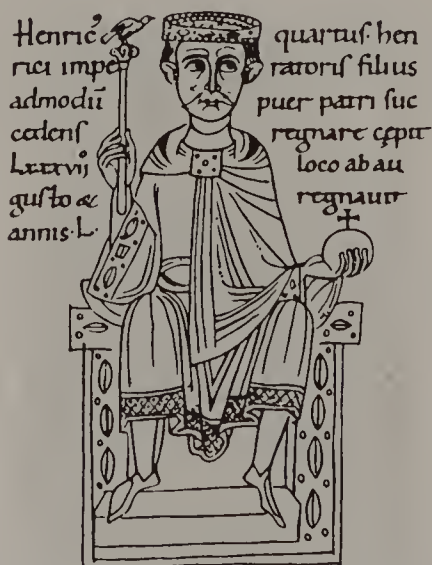 Henric᾽ quartus· hen
rici impe ratoris filius
admodū puer patri suc
cedens regnare cępit
Lxxxvij loco ab au
gusto & regnauit
annis·L·